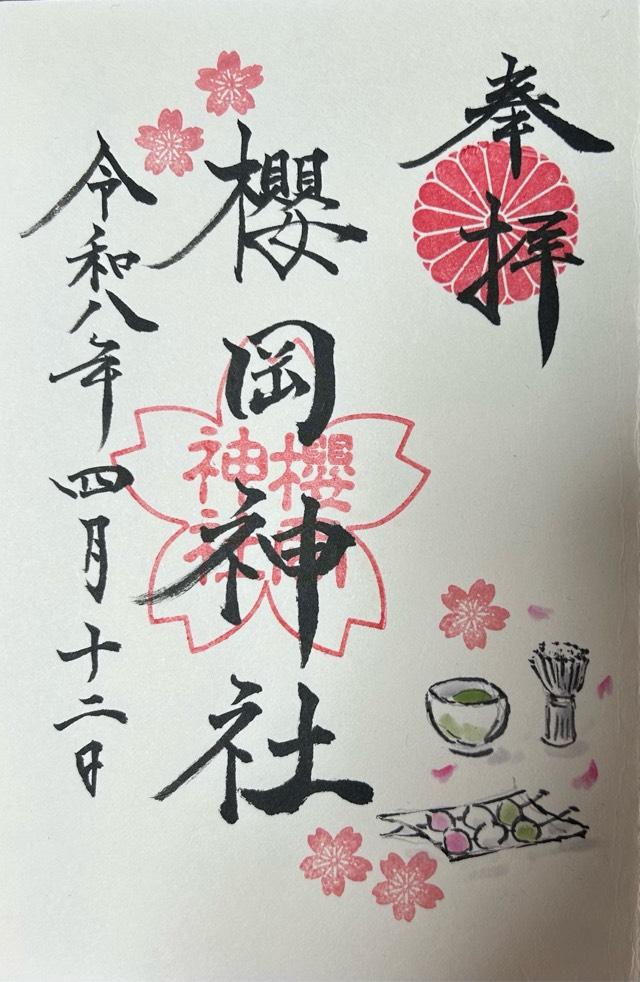 奉拝
櫻岡神社
櫻岡
神社
令和八年四月十二日